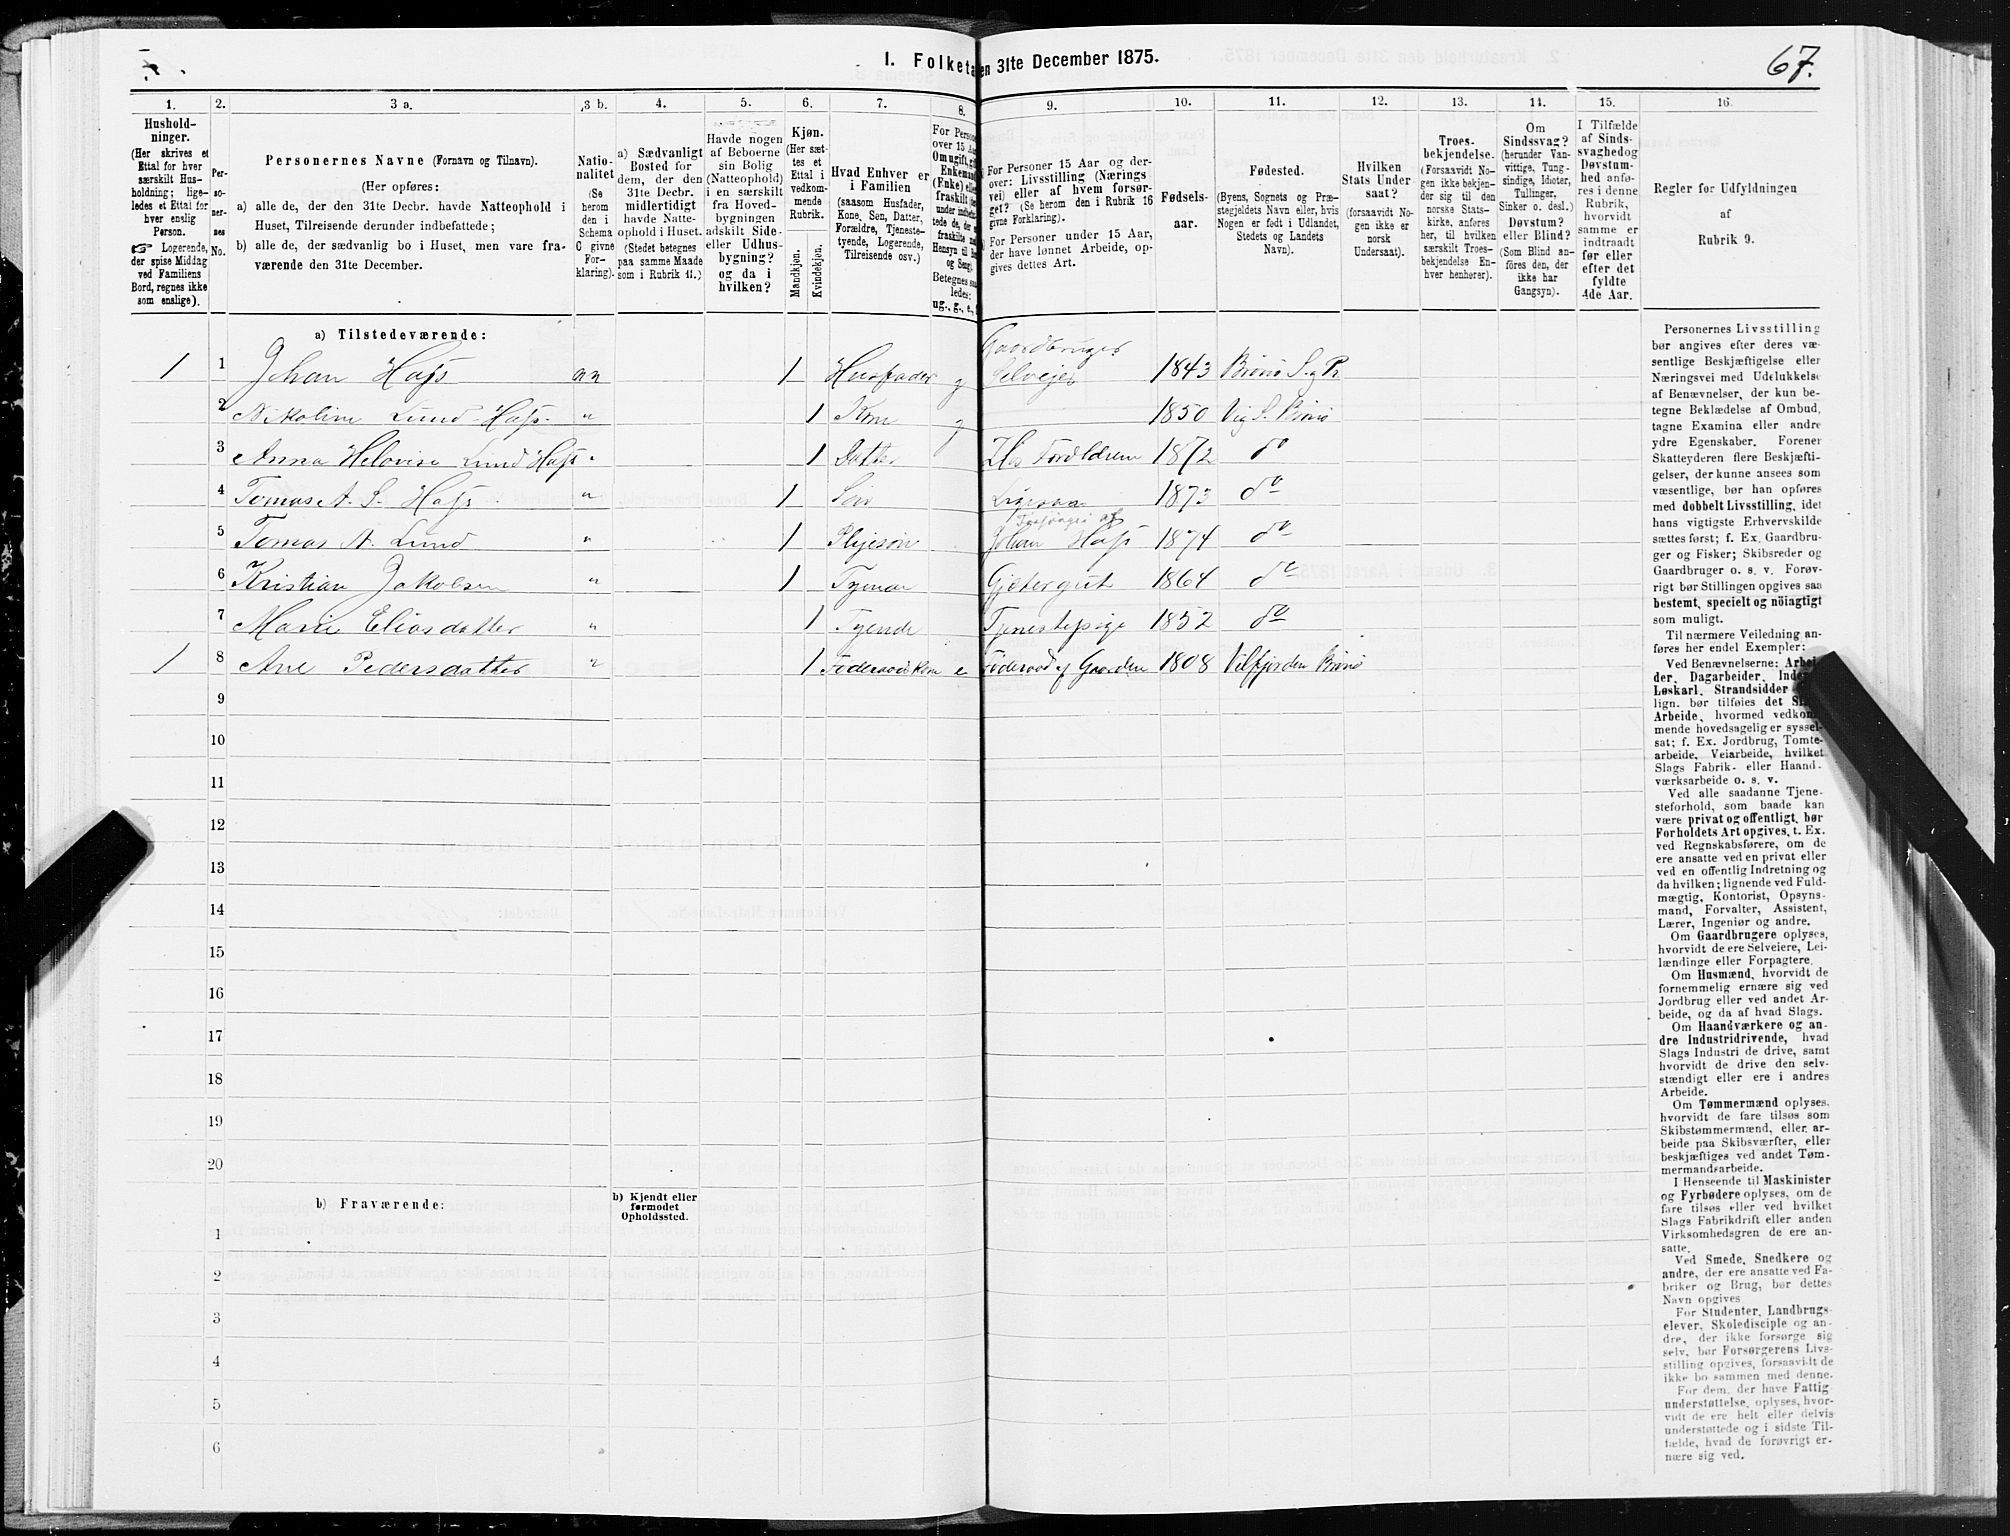 I. Folketæ en 31te December 1875.
67.
1. 2. 3 a. 3 b. 4. 5. 6. 7. 8. 9. 10. 11. 12. 13. 14. 15. 16.
Hushold-
ninger.
(Her skrives et
Ettal for hver
særskilt Hus-
holdning; lige-
ledes et Ettal for
hver enslig
Person.
☞ Logerende,
der spise Middag
ved Familiens
Bord, regnes ikke
som enslige).
Per-
so-
ner-
nes
No.
Personernes Navne (Fornavn og Tilnavn).
(Her opføres:
a) alle de, der den 31te Decbr. havde Natteophold i
Huset, Tilreisende derunder indbefattede;
b) alle de, der sædvanlig bo i Huset, men vare fra-
værende den 31te December.
Natio-
nalitet
(Se
herom
den i
Schema
C givne
For-
klaring).
a) Sædvanligt
Bosted for
dem, der den
31te Decbr.
midlertidigt
havde Natte-
ophold i Huset.
(Stedet betegnes
paa samme Maade
som i Rubrik 11.)
Havde nogen
af Beboerne
sin Bolig
(Natteophold)
i en særskilt
fra Hoved-
bygningen
adskilt Side-
eller Udhus-
bygning?
og da i
hvilken?
Kjøn.
(Her sæt-
tes et
Ettal i
vedkom-
mende
Rubrik.
Mandkjøn.
Kvindekjøn.
Hvad Enhver er
i Familien
(saasom Husfader,
Kone, Søn, Datter,
Forældre, Tjeneste-
tyende, Logerende,
Tilreisende osv.)
For Perso
over 15 Aar
Om ugift, gif
Enkemand
(Enke) elle
fraskilt
Betegnes saa
ledes:
ug., g., e.,
For Personer 15 Aar og der-
over: Livsstilling (Nærings
vei) eller af hvem forsør-
get? (Se herom den i Rubrik 16
givne Forklaring).
For Personer under 15 Aar,
der have lønnet Arbeide, op-
gives dettes Art.
Fødsels-
aar.
Fødested.
(Byens, Sognets og Præ-
stegjeldets Navn eller, hvis
Nogen er født i Udlandet,
Stedets og Landets
Navn).
Hvilken
Stats Under
saat?
(forsaavidt No-
gen ikke er
norsk
Undersaat).
Troes-
bekjendelse.
(Forsaavidt No-
gen ikke bekjen-
der sig til den
norske Stats-
kirke, anføres
her, til hvilken
særskilt Troes-
bekjendelse En-
hver henhører).
Om
Sindssvag?
(herunder Van-
vittige, Tung-
sindige, Idioter,
Tullinger,
Sinker o. desl.)
Døvstum?
eller Blind?
(Som Blind an-
føres den, der
ikke har
Gangsyn).
I Tilfælde
af Sinds-
svaghed og
Døvstum-
hed anfø-
res i denne
Rubrik,
hvorvidt
samme er
indtraadt
før eller
efter det
fyldte
4de Aar.
Regler for Udfyldningen
af
Rubrik 9.
a) Tilstedeværende:
Gaardbruger
1 1 Johan Hofs nn 1 Husfader g Selveier 1843 Brønø S. og Pr
2 Nikoline Lund Hofs " 1 Kone g 1850 Vig S. Brønø
3 Anna Helovise Lund Hofs " 1 Datter Hos Forældrene 1872 do
4 Tomas A. S. Hofs " 1 Søn Ligesaa 1873 do
Forsørges af
5 Tomas A. Lund " 1 Plejesøn Johan Hofs 1874 do
6 Kristian Jakobsen " 1 Tyende Gjætergut 1864 do
7 Marie Eliasdatter " 1 Tyende Tjenestepige 1852 do
1 8 Ane Pedersdatter " 1 Føderaadskone e Føderaad af Gaarden 1808 Vilfjorden Brønø
9
10
11
12
13
14
15
16
17
18
19
20
b) Fraværende:
b) Kjendt eller
formodet
Opholdssted.
1
2
3
4
5
6
Personernes Livsstilling
bør angives efter deres væ-
sentlige Beskjæftigelse eller
Næringsvei med Udelukkelse
af Benævnelser, der kun be-
tegne Beklædelse af Ombud,
tagne Examina eller andre
ydre Egenskaber. Forener
Skatteyderen flere Beskjæfti-
gelser, der kunne ansees som
væsentlige, bør han opføres
med dobbelt Livsstilling, idet
hans vigtigste Erhvervskilde
sættes først; f. Ex. Gaardbru-
ger og Fisker; Skibsreder og
Gaardbruger o. s. v. Forøv-
rigt bør Stillingen opgives saa
bestemt, specielt og nøiagtigt
som muligt.
Til nærmere Veiledning an-
føres her endel Exempler:
Ved Benævnelserne: Arbei
der, Dagarbeider, Inder
Løskarl, Strandsidder
lign. bør tilføies det Sl
Arbeide, hvormed vedkom
mende hovedsagelig er syssel-
sat; f. Ex. Jordbrug, Tomte-
arbeide, Veiarbeide, hvilket
Slags Fabrik- eller Haand-
værksarbeide o. s. v.
Ved alle saadanne Tjene-
steforhold, som baade kan
være privat og offentligt, bør
Forholdets Art opgives, t. Ex.
ved Regnskabsførere, om de
ere ansatte ved en privat eller
ved en offentlig Indretning og
da hvilken; lignende ved Fuld-
mægtig, Kontorist, Opsyns-
mand, Forvalter, Assistent,
Lærer, Ingeniør og andre.
Om Gaardbrugere oplyses,
hvorvidt de ere Selveiere, Lei-
lændinge eller Forpagtere.
Om Husmænd, hvorvidt de
fornemmelig ernære sig ved
Jordbrug eller ved andet Ar-
beide, og da af hvad Slags.
Om Haandværkere og an-
dre Industridrivende, hvad
Slags Industri de drive, samt
hvorvidt de drive den selv-
stændigt eller ere i andres
Arbeide.
Om Tømmermænd oplyses,
hvorvidt de fare tilsøs som
Skibstømmermænd, eller ar-
beide paa Skibsværfter, eller
beskjæftiges ved andet Tøm-
mermandsarbeide.
I Henseende til Maskinister
og Fyrbødere oplyses, om de
fare tilsøs eller ved hvilket
Slags Fabrikdrift eller anden
Virksomhedsgren de ere an-
satte.
Ved Smede, Snedkere og
andre, der ere ansatte ved Fa-
briker og Brug, bør dettes
Navn opgives
For Studenter, Landbrugs-
elever, Skoledisciple og an-
dre, der ikke forsørge sig
selv, bør Forsørgerens Livs-
stilling opgives, forsaavidt de
ikke bo sammen med denne.
For dem, der have Fattig
understøttelse, oplyses, hvor-
vidt de ere helt eller delvis
understøttede og i sidste Til-
fælde, hvad de forøvrigt er-
nære sig ved.